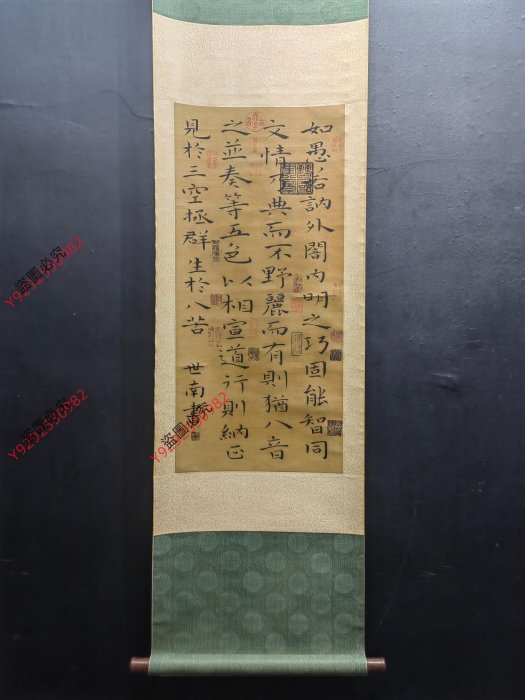 如愚若訥外闇内明之巧固能智同
文情不典而不野麗而有則猶八音
之並奏等五色以相宣道行則納正
見於三空拯群生於八苦 世南書
盜圖必究
盜圖必究
盜圖必究